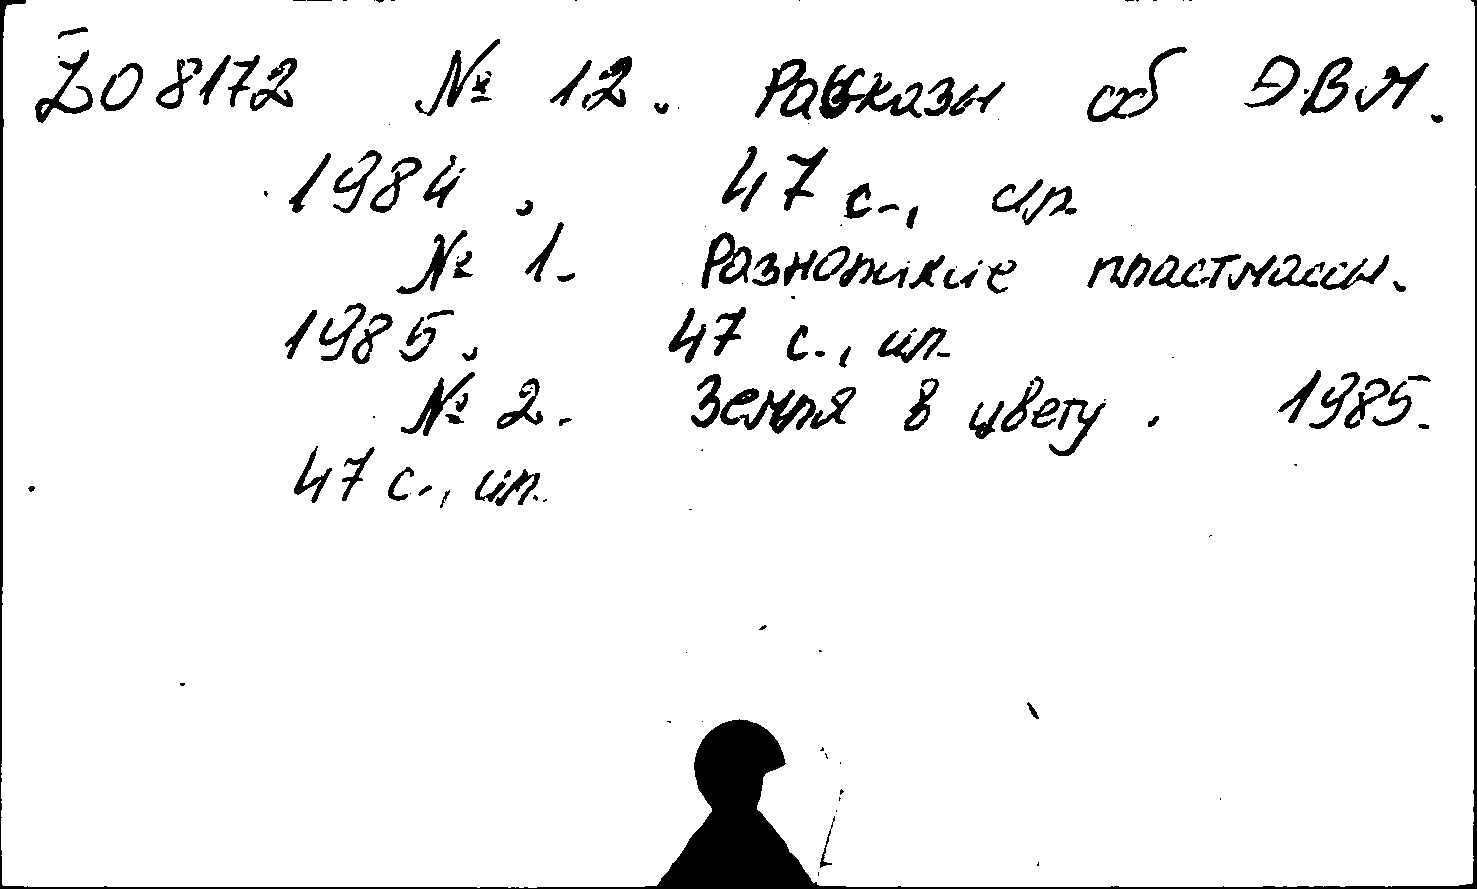 Z08172 № 12. Рассказы об ЭВМ.
1984. 47 с., ил.
№ 1. Разноликие пластмассы.
1985. 47 с., ил.
№ 2. Земля в цвету. 1985.
47 с., ил.